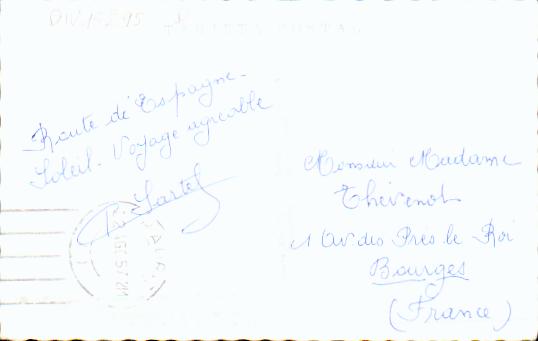 TARJETA POSTAL
Route de Espagne -
Soleil - Voyage agréable
Monsieur Madame
Thévenot
1 Av des Prés le Roi
Bourges
(France)